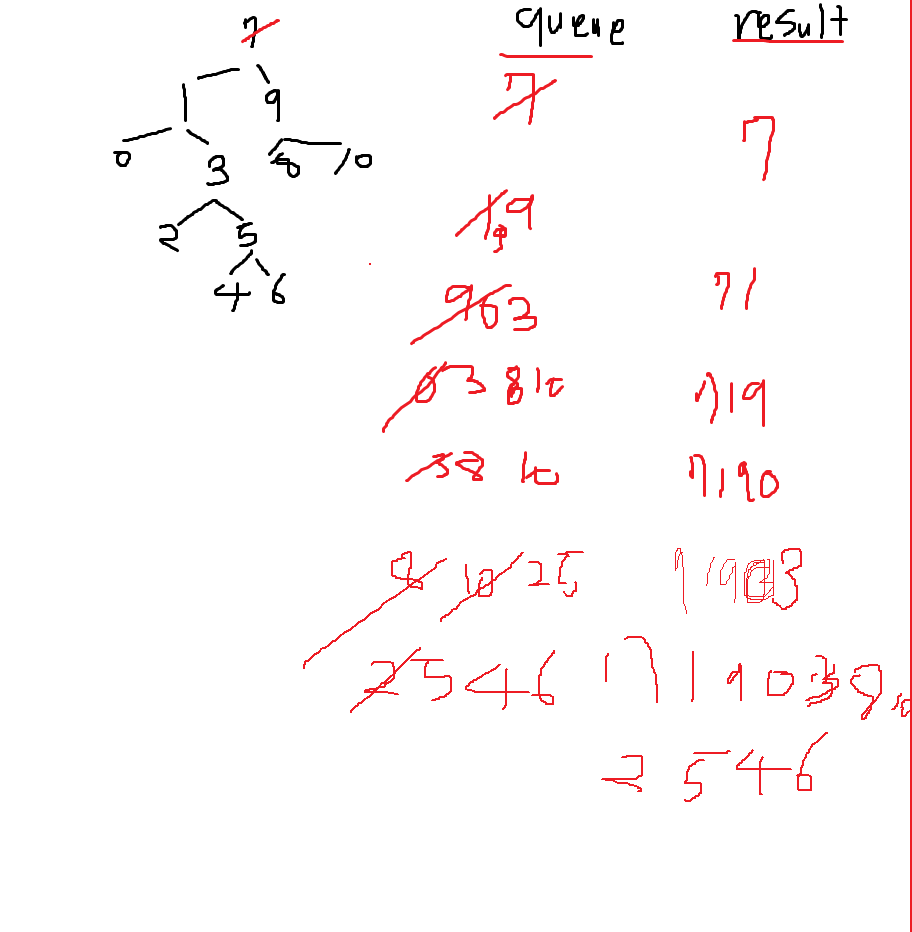 7 queue result
9
7
7
0 3 8 10
1 9
2 5
4 6
9 0 3 7 1
0 3 8 10 7 1 9
3 8 10 7 1 9 0
8 10 2 5 7 1 9 0 3
2 5 4 6 7 1 9 0 3 8 10
2 5 4 6